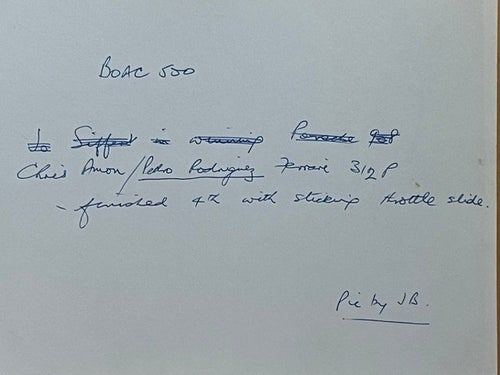 BOAC 500
Jo Siffert in winning Porsche 908
Chris Amon / Pedro Rodriguez Ferrari 312P
- finished 4th with sticking throttle slide.
Pic by JB.